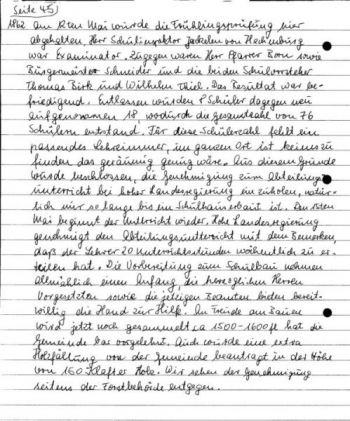 Seite 45)
1862 am 12ten Mai wurde die Frühlingsprüfung hier
abgehalten, Herr Schulinspektor von Hachenburg
war Examinator. Zugegen waren Herr Pfarrer Born sowie
Bürgermeister Schneider und die beiden Schulvorsteher
Thomas Birk und Wilhelm Thiel. Das Resultat war be-
friedigend. Entlassen wurden 8 Schüler dagegen neu
aufgenommen 18 wodurch die Gesamtzahl von 76
Schülern entstand. Für diese Schülerzahl fehlt ein
passendes Lehrzimmer, im ganzen Ort ist keines zu
finden das geräumig genug wäre. Aus diesem Grunde
wurde beschlossen, die Genehmigung zum Abteilungs-
unterricht bei hoher Landesregierung einzuholen, natür-
lich nur so lange bis ein Schulhaus erbaut ist. Am
Mai beginnt der Unterricht wieder. Hohe Landesregierung
genehmigt den Abteilungsunterricht mit dem Bemerken,
daß der Lehrer 20 Unterrichtsstunden wöchentlich zu er-
teilen hat. Die Vorbereitung zum Schulbau nehmen
allmählich einen Anfang die herzoglichen Herren
Vorgesetzten sowie die jetzigen Beamten bieten bereit-
willig die Hand zur Hilfe. Im Bauen
wird jetzt noch gesammelt ca 1500-1600 fl hat die
Gemeinde bar vorgelehnt. Auch wurde eine extra
Holzfällung von der Gemeinde beantragt in der Höhe
von 160 Klafter Holz. Wir sehen der Genehmigung
seitens der Forstbehörde entgegen.